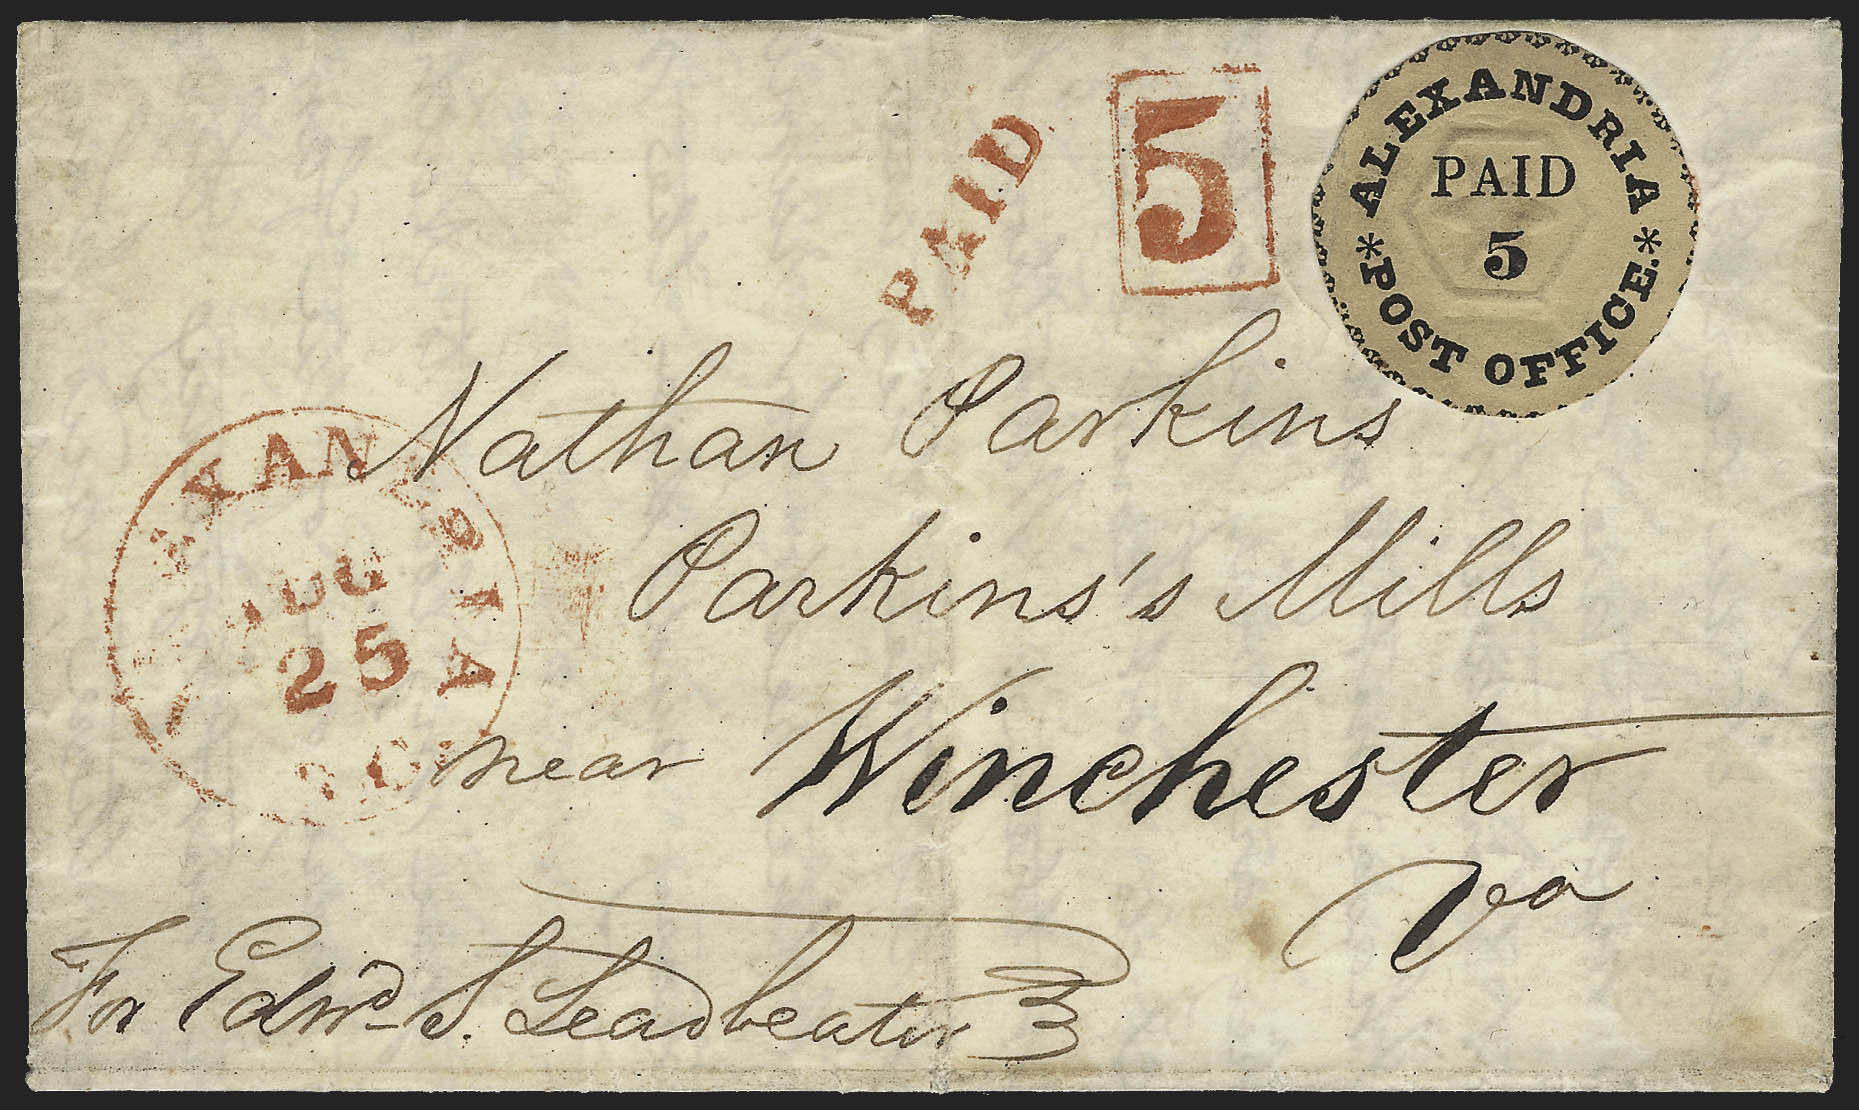 PAID
5
ALEXANDRIA
PAID
5
* POST OFFICE. *
Nathan Parkins
Parkins's Mills
near Winchester
Va
AUG
25
D.C.
For Edwd. S. Leadbeater